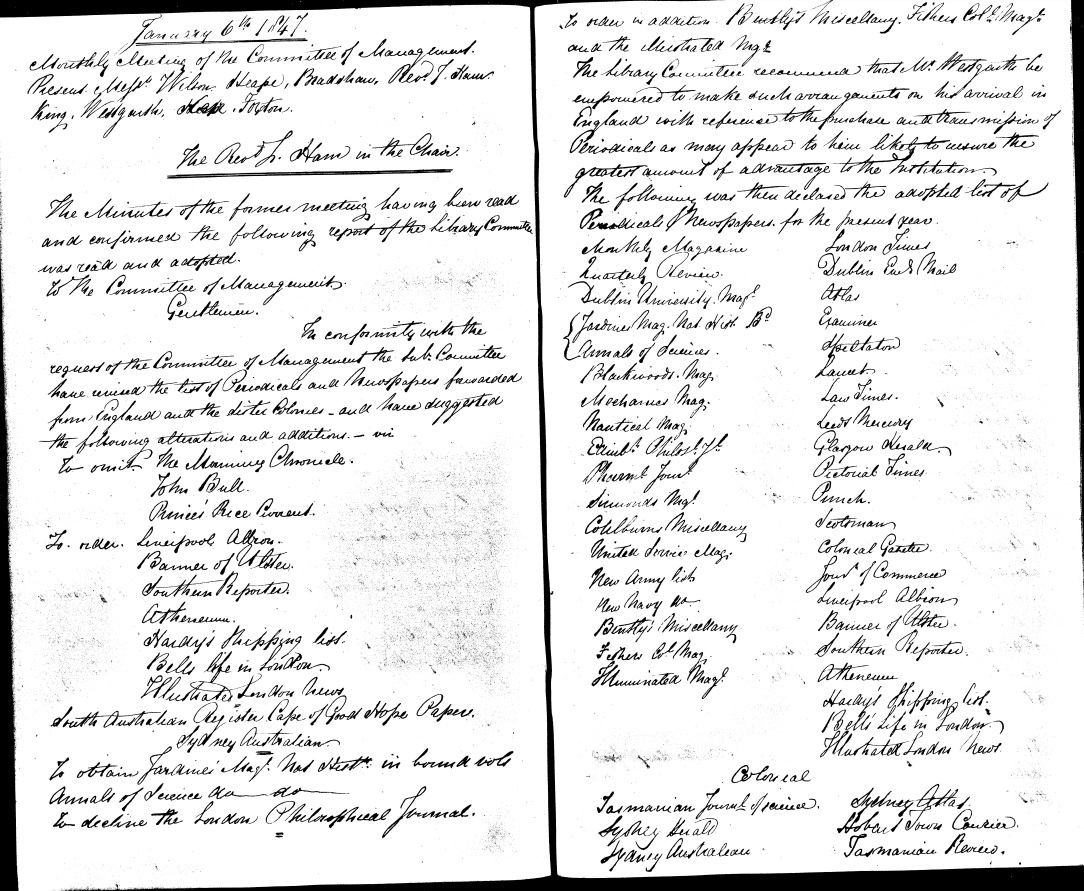 January 6th 1847.
Monthly Meeting of the Committee of Management.
Present Messrs Wilson, Heape, Bradshaw, Revd. J. Ham
King, Westgarth, Heap, Foxton.
The Revd J. Ham in the Chair.
The Minutes of the former meeting having been read
and confirmed the following report of the Library Committee
was read and adopted.
To the Committee of Management.
Gentlemen.
In conformity with the
request of the Committee of Management the Sub. Committee
have revised the list of Periodicals and Newspapers forwarded
from England and the sister Colonies - and have suggested
the following alterations and additions. - viz
To omit The Morning Chronicle.
John Bull.
Prince's Price Current.
To order. Liverpool Albion.
Banner of Ulster.
Southern Reporter.
Atheneum.
Hardy's Shipping list.
Bells life in London
Illustrated London News
South Australian Register Cape of Good Hope Paper.
Sydney Australian
To obtain Jardines' Magz. Nat Hist. in bound vols
Annals of Science do do
To decline the London Philosophical Journal.
To order in addition. Bently's Miscellany. Fishers Col. Magz.
and the Illustrated Mgz
The Library Committee recommend that Mr. Westgarth be
empowered to make such arrangements on his arrival in
England with reference to the purchase and transmission of
Periodicals as may appear to him likely to insure the
greatest amount of advantage to the Institution
The following was then declared the adopted list of
Periodical & Newspapers. for the present year.
Monthly Magazine London Times
Quarterly Review. Dublin Eveg Mail
Dublin University. Magz. Atlas
Jardines Mag. Nat Hist. Examiner
Annals of Science. Spectator
Blackwoods. Mag. Lancet.
Mechanics Mag. Law Times.
Nautical Mag. Leeds Mercury
Edinb. Philosl. Jl. Glasgow Herald
Pharmt Jour Pictorial Times
Simmonds Mgz. Punch.
Colburns Miscellany Scotsman
United Service Mag. Colonial Gazette.
New Army list Journl of Commerce
New Navy do. Liverpool Albion
Bently's Miscellany Banner of Ulster.
Fishers Col. Mag. Southern Reporter.
Illuminated Magz. Atheneum
Hardy's Shipping list.
Bell's Life in London
Illustrated London News.
Colonial
Tasmanian Journl. of science. Sydney Atlas.
Sydney Herald Hobart Town Courier.
Sydney Australian Tasmanian Review.